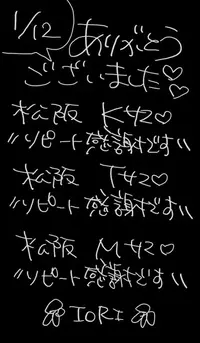 1/12
ありがとう
ございました♡♡
松阪 K様♡
"リピート感謝です"
松阪 T様♡
"リピート感謝です"
松阪 M様♡
"リピート感謝です"
IORI